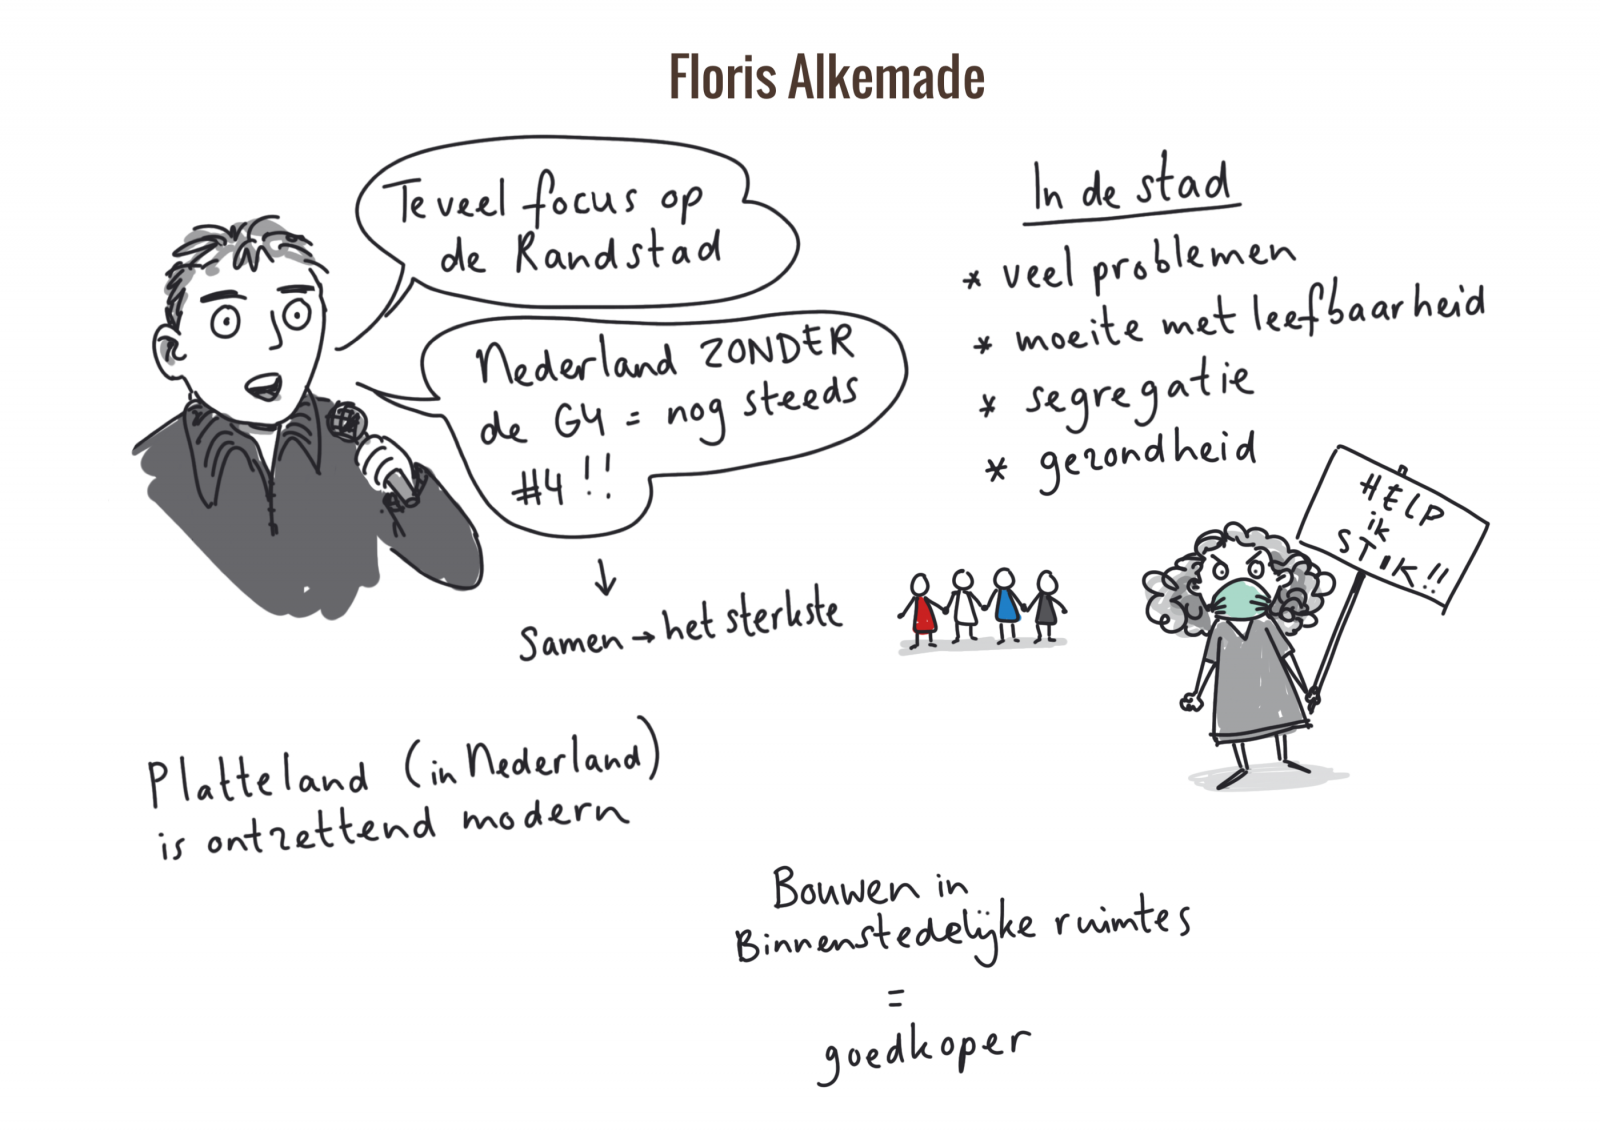 Floris Alkemade
Te veel focus op
de Randstad
Nederland ZONDER
de G4 = nog steeds
#4 !!
↓
Samen → het sterkste
In de stad
* veel problemen
* moeite met leefbaarheid
* segregatie
* gezondheid
HELP
ik
STIK!!
Platteland (in Nederland)
is ontzettend modern
Bouwen in
Binnenstedelijke ruimtes
=
goedkoper